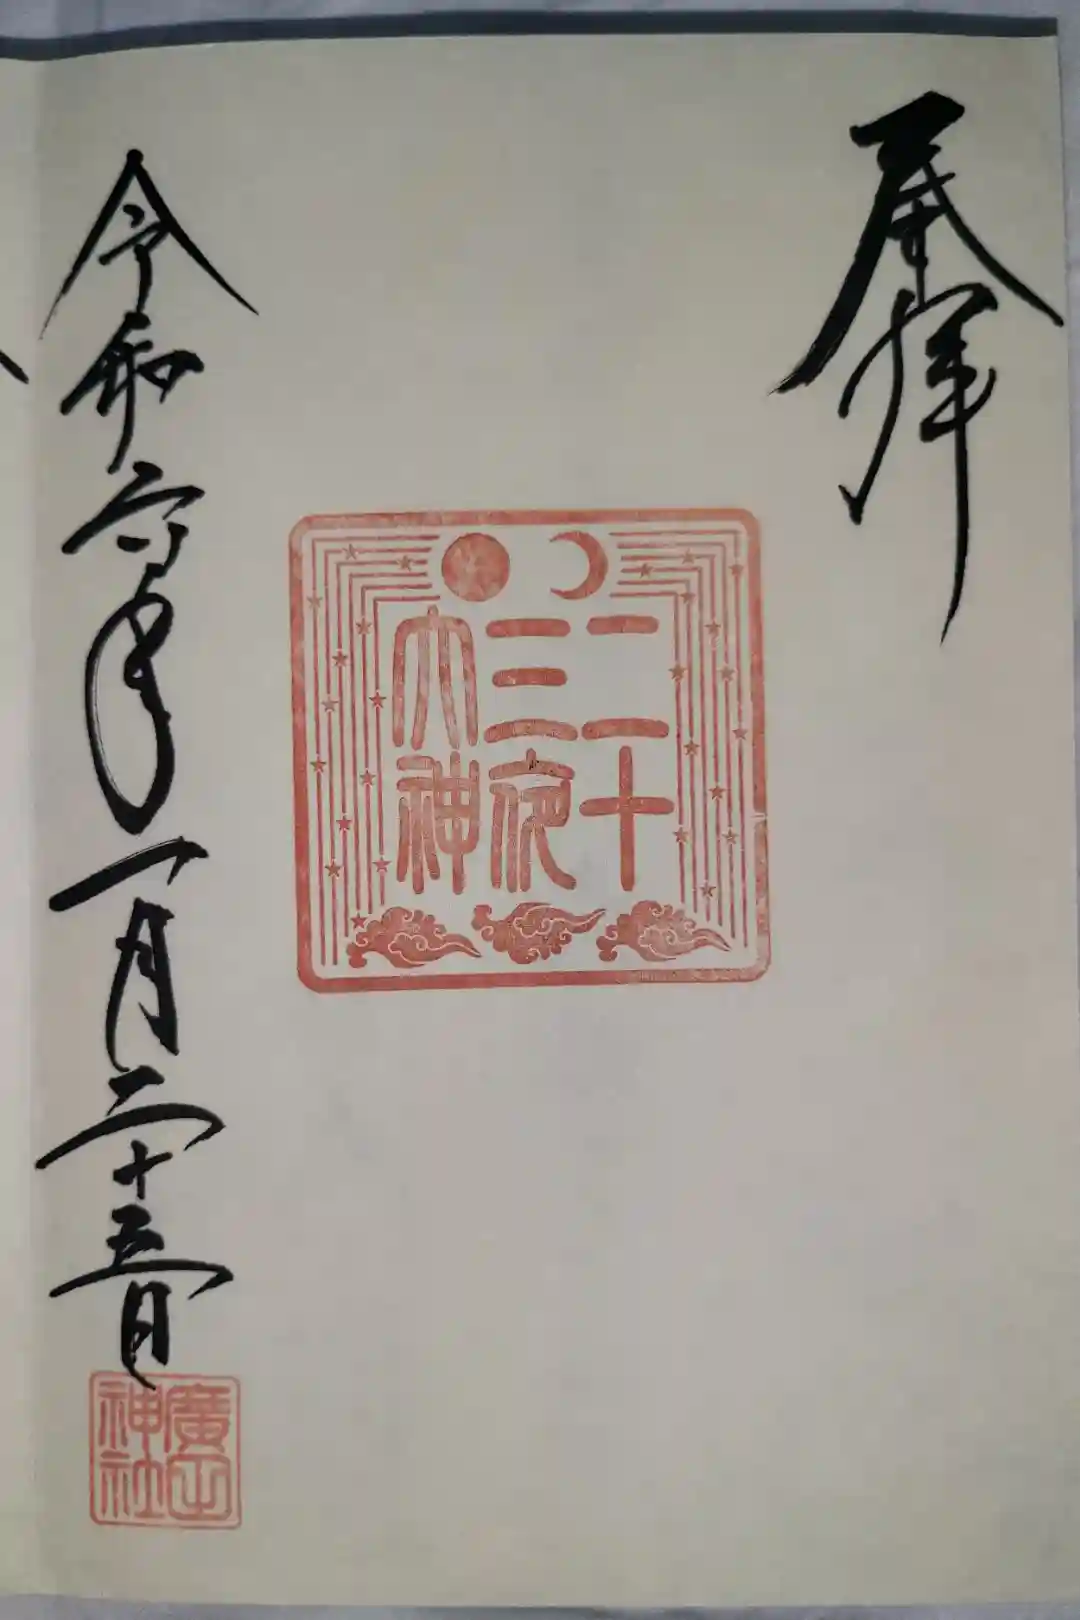 奉拝
二十
三夜
大神
令和六年一月二十三日
廣
神社